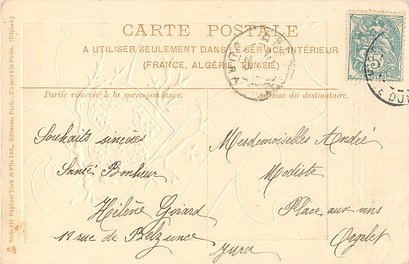 CARTE POSTALE
A UTILISER SEULEMENT DANS LE SERVICE INTÉRIEUR
(FRANCE, ALGÉRIE, TUNISIE)
Partie réservée à la correspondance.
du destinataire.
Souhaits sincères
Santé Bonheur
Hélène Girard
18 rue de Belzunce
Mesdemoiselles André
Modiste
Place aux vins
Orgelet
Jura
Raphael Tuck & Fils Ltd., Editeurs, Paris.